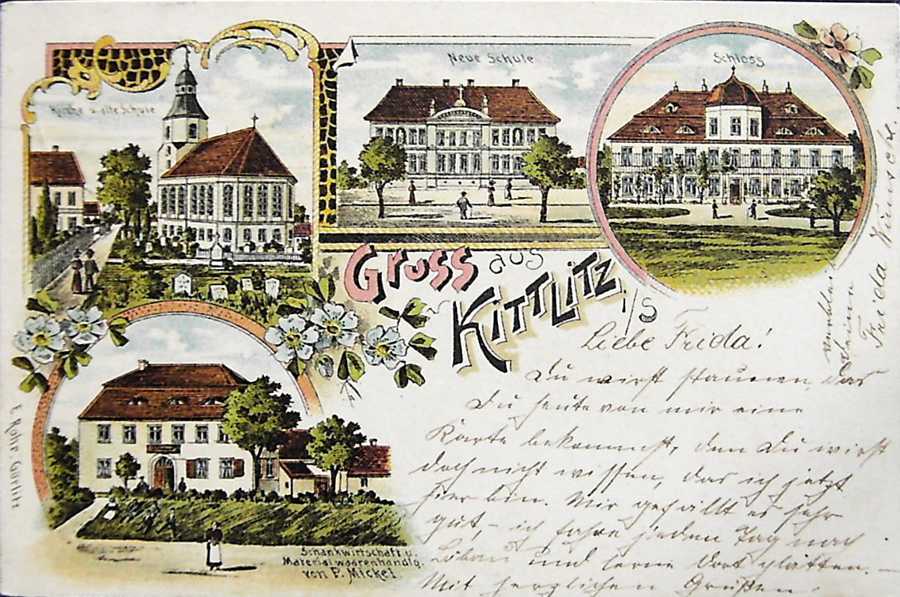 Kirche u. alte Schule
Neue Schule
Schloss
Gruss aus
Kittlitz i/S
Schankwirtschaft u.
Materialwaarenhandlg.
von P. Mickel
E. Rohr Görlitz
Liebe Frida!
Du wirst staunen, das
Du heute von mir eine
Karte bekommst, den Du wirst
doch nicht wissen, das ich jetzt
hier bin. Mir gefällt es sehr
gut, - ich fahre jeden Tag nach
Löbau und lerne dort plätten. -
Mit herzlichen Grüßen
Deine
Frida